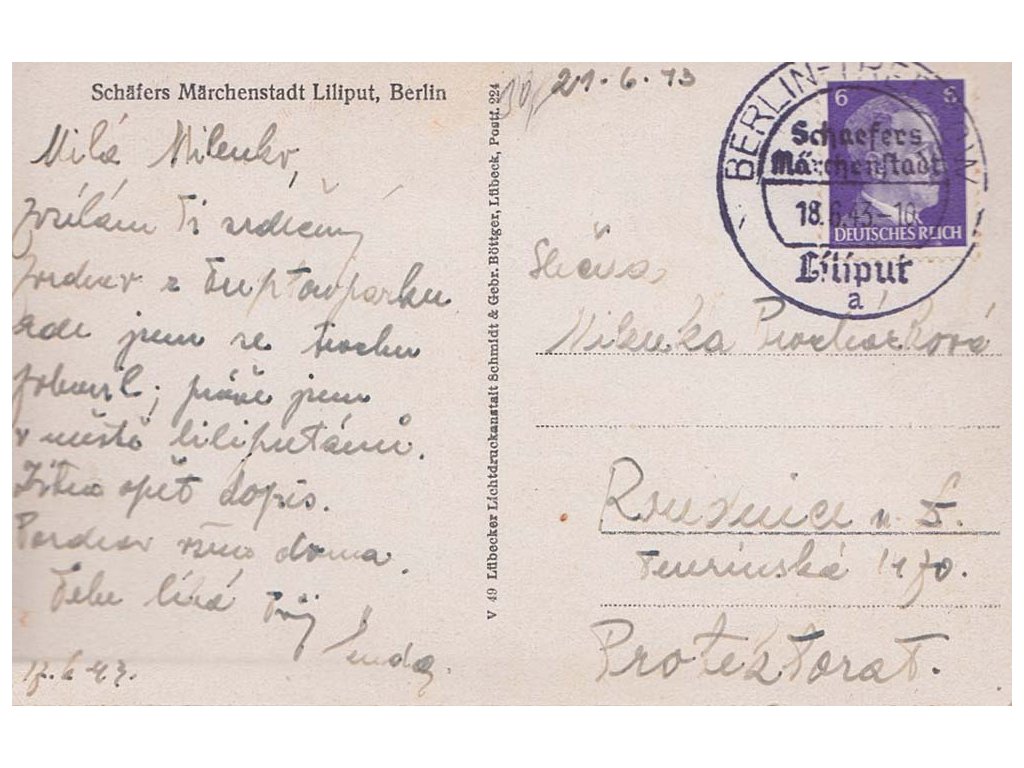 Schäfers Märchenstadt Liliput, Berlin
Milá Milenko,
Ti srdečný
pozdrav z Truptowparku
kde jsem se trochu
; právě jsem
v městě liliputánů.
Zítra opět dopis.
Pozdrav všem doma.
Tebe líbá Tvůj
17.6.43.
V 49 Lübecker Lichtdruckanstalt Schmidt & Gebr. Böttger, Lübeck, Postf. 224
21.6.43
BERLIN-TREPTOW
Schaefers
Märchenstadt
18.6.43-10
Liliput
a
6 6
DEUTSCHES REICH
Slečna
Milenka Procházková
Roudnice n. L.
1170.
Protektorat.